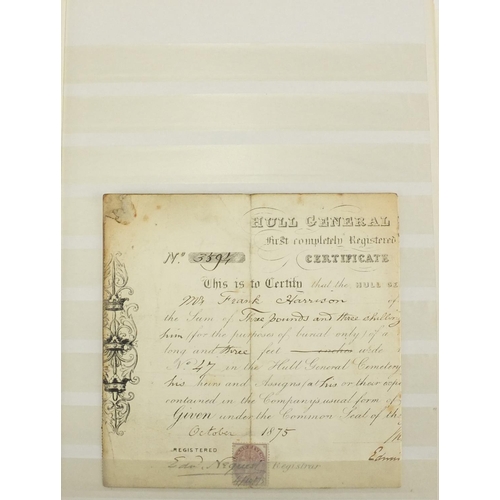 HULL GENERAL
First completely Registered
No. 3594 CERTIFICATE
This is to Certify that the HULL GE
Mr Frank Harrison of
the Sum of Three pounds and three shilling
him (for the purposes of burial only) of a
long and three feet inches wide
No. 47 in the Hull General Cemetery
his heirs and Assigns, (at his or their
contained in the Companys usual form of
Given under the Common Seal of th
October 1875
REGISTERED
Edwd. Registrar Edwin